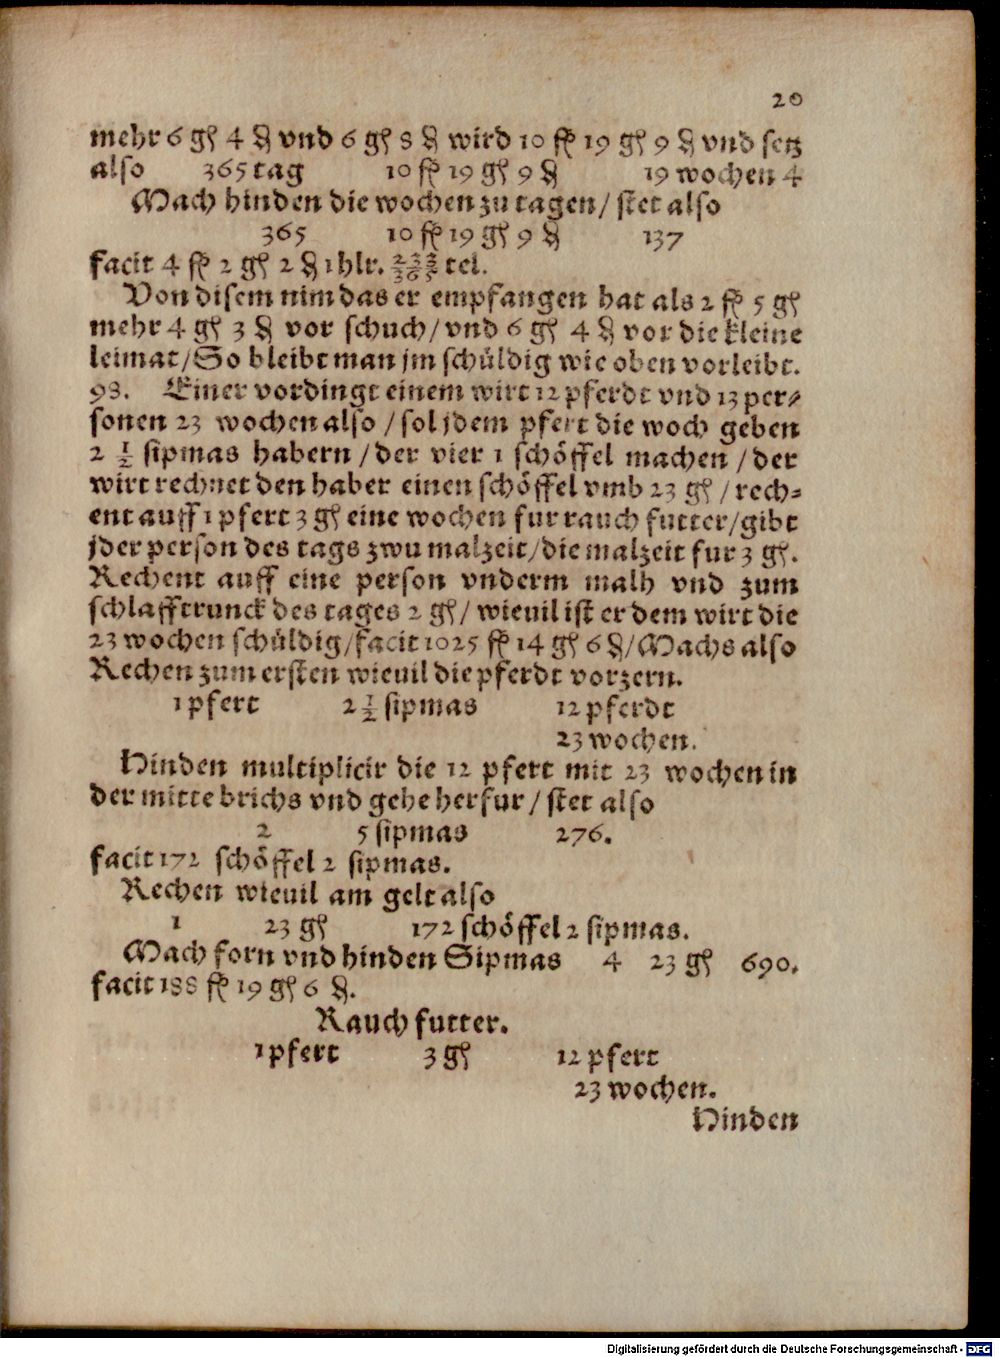 20
mehr 6 gl 4 ₰ vnd 6 gl 8 ₰ wird 10 fl 19 gl 9 ₰ vnd setz
also 365 tag 10 fl 19 gl 9 ₰ 19 wochen 4
Mach hinden die wochen zu tagen/ stet also
365 10 fl 19 gl 9 ₰ 137
facit 4 fl 2 gl 2 ₰ 1 hlr. 233/365 tel.
Von disem nim das er empfangen hat als 2 fl 5 gl
mehr 4 gl 3 ₰ vor schuch/ vnd 6 gl 4 ₰ vor die kleine
leimat/ So bleibt man jm schůldig wie oben vorleibt.
98. Einer vordingt einem wirt 12 pferdt vnd 13 per⸗
sonen 23 wochen also / sol jdem pfert die woch geben
2 1/2 sipmas habern / der vier 1 schöffel machen / der
wirt rechnet den haber einen schöffel vmb 23 gl / rech⸗
ent auff 1 pfert 3 gl eine wochen fur rauch futter/ gibt
jder person des tags zwu malzeit/ die malzeit fur 3 gl.
Rechent auff eine person vnderm malh vnd zum
schlafftrunck des tages 2 gl/ wieuil ist er dem wirt die
23 wochen schůldig/ facit 1025 fl 14 gl 6 ₰/ Machs also
Rechen zum ersten wieuil die pferdt vorzern.
1 pfert 2 1/2 sipmas 12 pferdt
23 wochen.
Hinden multiplicir die 12 pfert mit 23 wochen in
der mitte brichs vnd gehe herfur / stet also
2 5 sipmas 276.
facit 172 schöffel 2 sipmas.
Rechen wieuil am gelt also
1 23 gl 172 schöffel 2 sipmas.
Mach forn vnd hinden Sipmas 4 23 gl 690.
facit 188 fl 19 gl 6 ₰.
Rauch futter.
1 pfert 3 gl 12 pfert
23 wochen.
Hinden
Digitalisierung gefördert durch die Deutsche Forschungsgemeinschaft - DFG